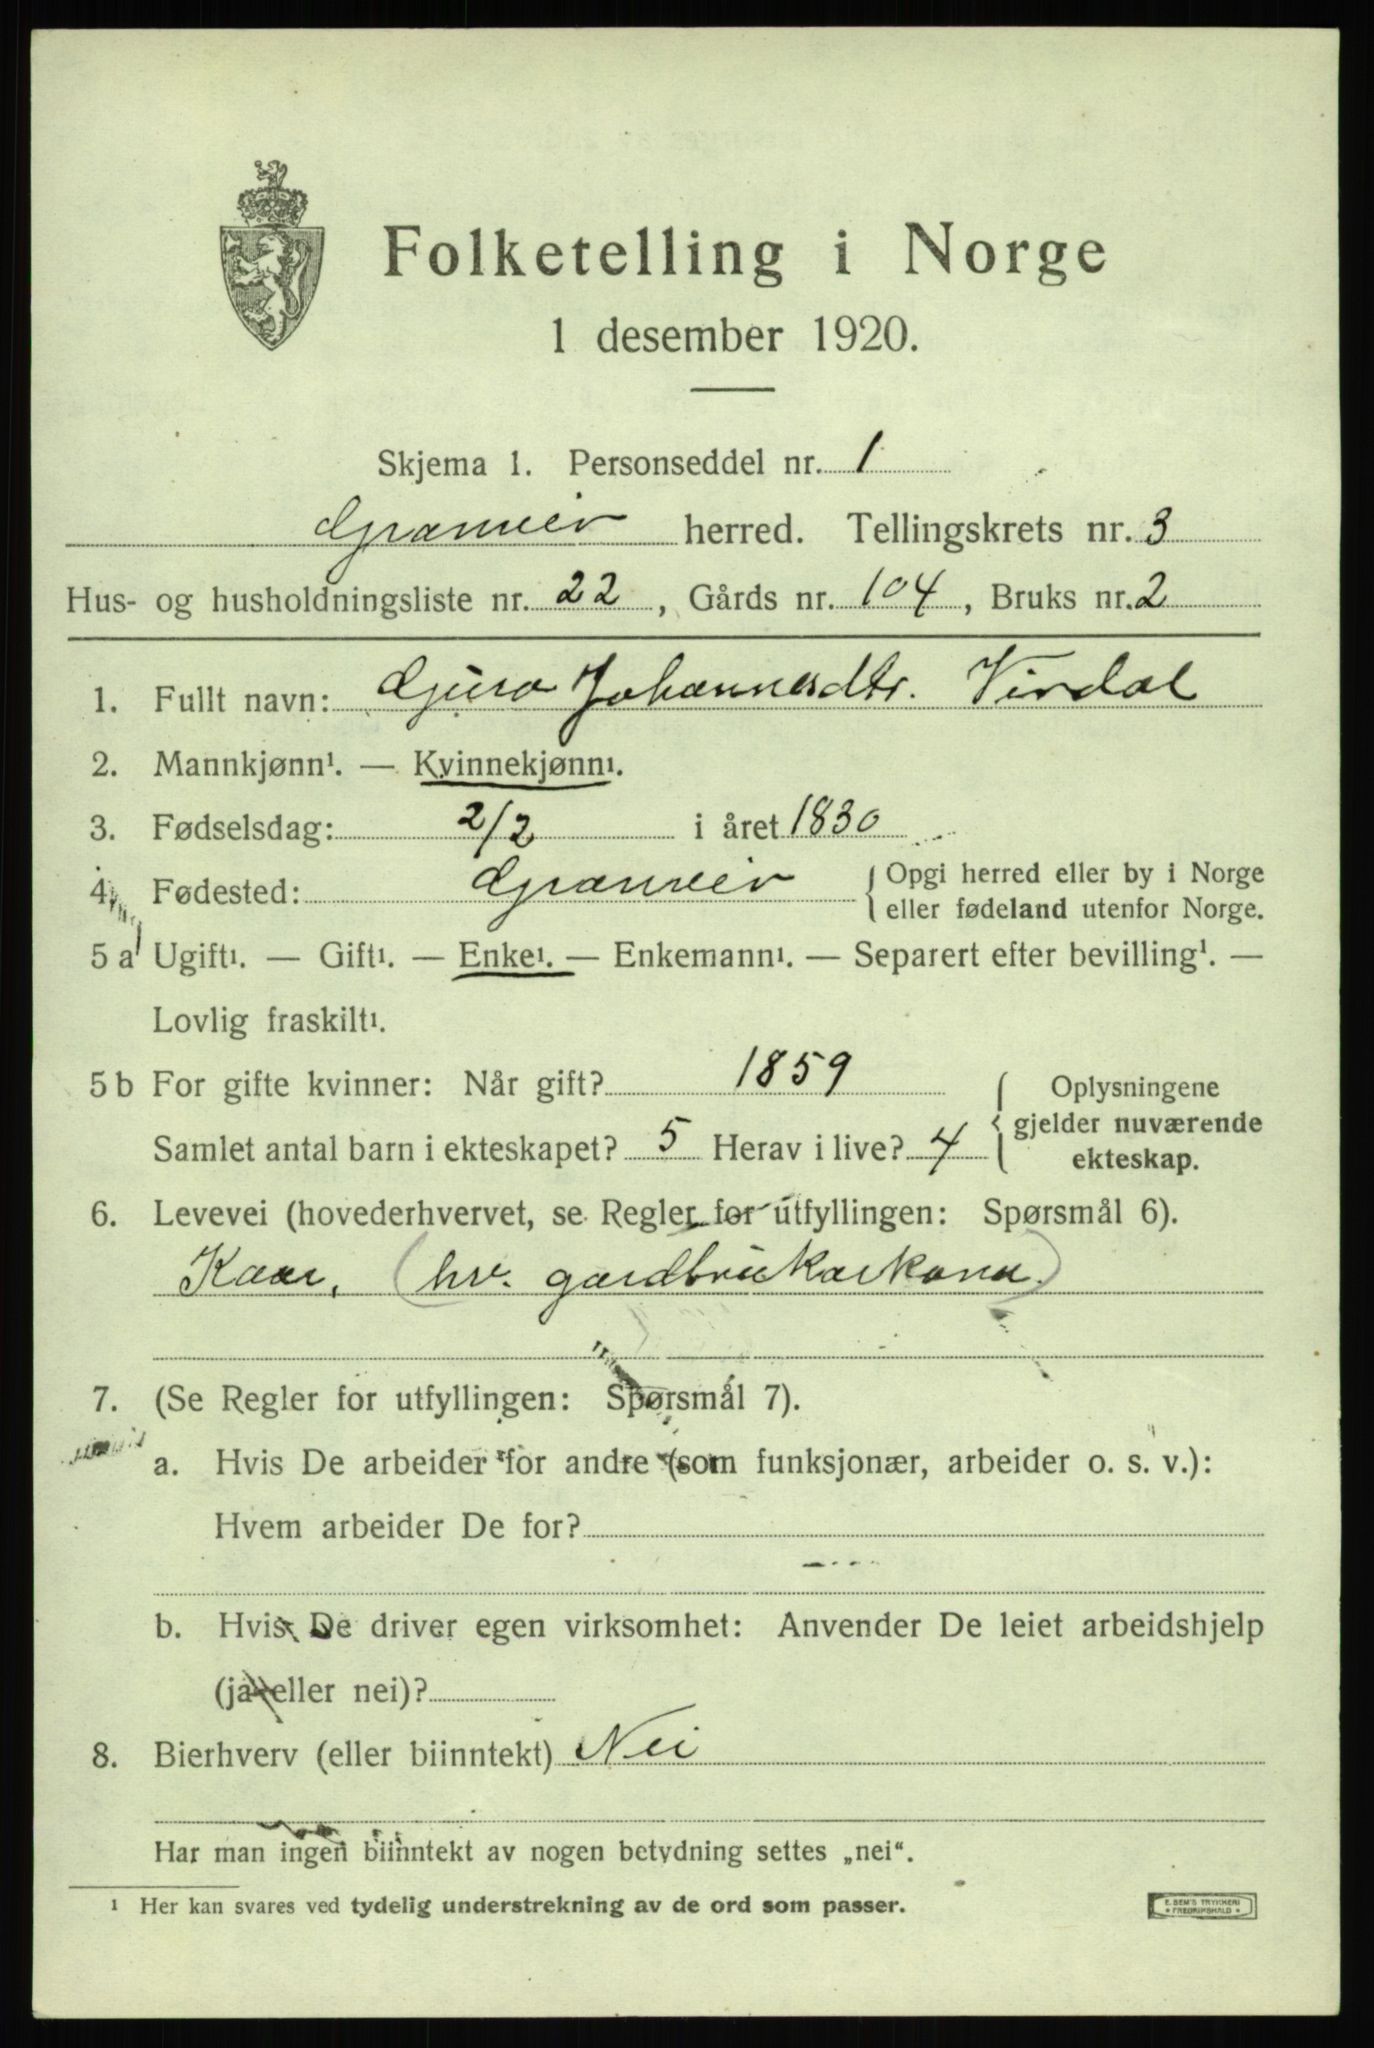 Folketelling i Norge
1 desember 1920.
Skjema 1. Personseddel nr. 1
Granvin herred. Tellingskrets nr. 3
Hus- og husholdningsliste nr. 22, Gårds nr. 104, Bruks nr. 2
1. Fullt navn: Gjuro Johannesdtr. Virdal
2. Mannkjønn¹. — Kvinnekjønn¹.
3. Fødselsdag: 2/2 i året 1830
4. Fødested: Granvin { Opgi herred eller by i Norge
eller fødeland utenfor Norge.
5 a Ugift¹. — Gift¹. — Enke¹. — Enkemann¹. — Separert efter bevilling¹. —
Lovlig fraskilt¹.
5 b For gifte kvinner: Når gift? 1859
Samlet antal barn i ekteskapet? 5 Herav i live? 4
{ Oplysningene
gjelder nuværende
ekteskap.
6. Levevei (hovederhvervet, se Regler for utfyllingen: Spørsmål 6).
Kaar, (hv. gardbrukarkona.)
7. (Se Regler for utfyllingen: Spørsmål 7).
a. Hvis De arbeider for andre (som funksjonær, arbeider o. s. v.):
Hvem arbeider De for?
b. Hvis De driver egen virksomhet: Anvender De leiet arbeidshjelp
(ja eller nei)?
8. Bierhverv (eller biinntekt) Nei
Har man ingen biinntekt av nogen betydning settes „nei“.
¹ Her kan svares ved tydelig understrekning av de ord som passer.
E. SEM'S TRYKKERI
* FREDRIKSHALD *